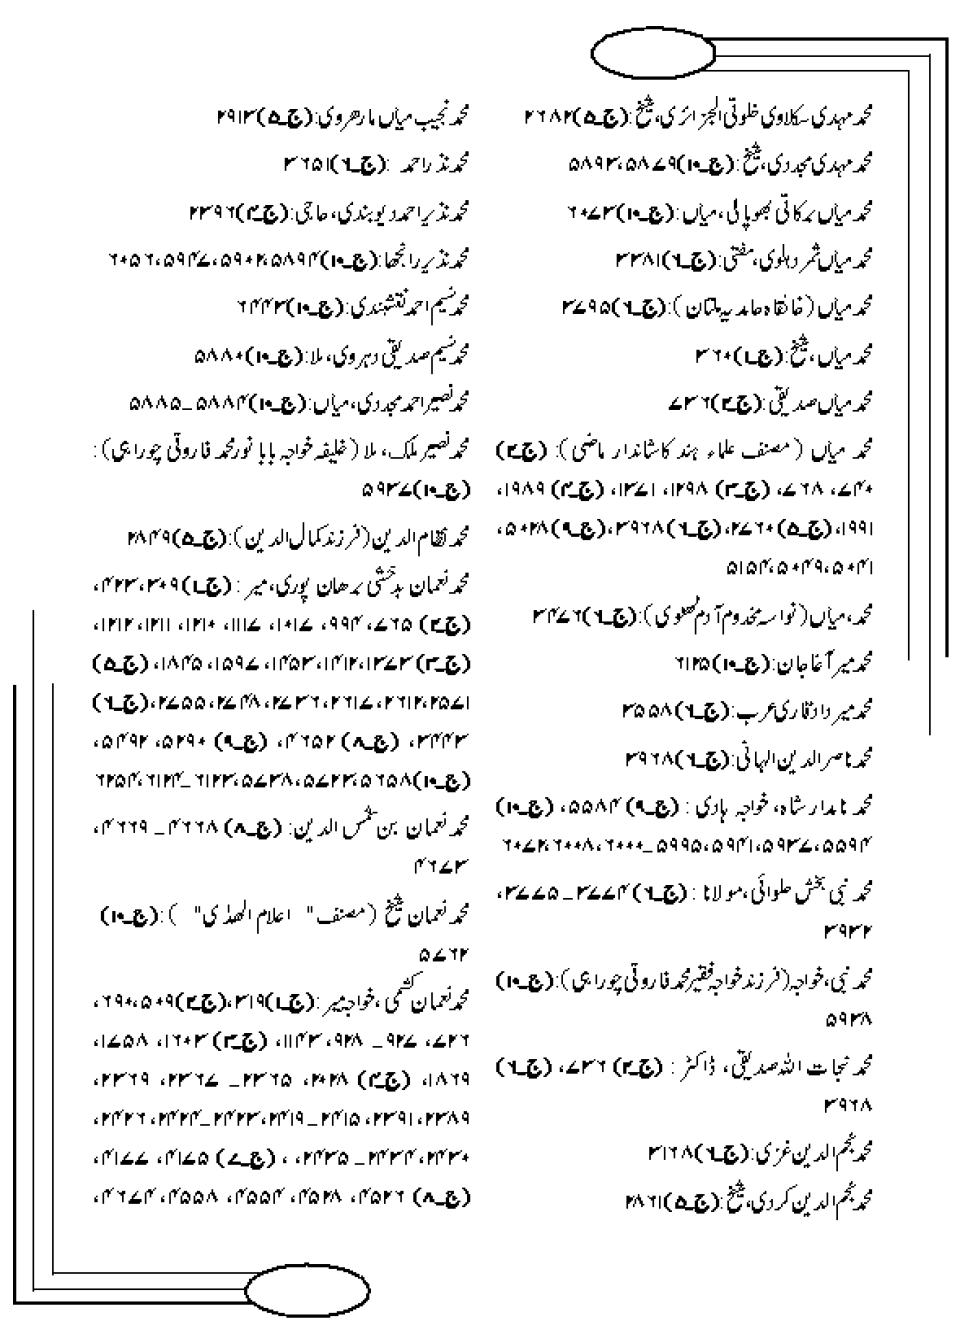 محمد مہدی سکلاوی خلوتی الجزائری، شیخ:(ج_۵)۲۶۸۲
محمد مہدی مجددی، شیخ:(ج_۱۰)۵۸۷۹، ۵۸۹۳
محمد میاں برکاتی بھوپالی، میاں:(ج_۱۰)۶۰۷۳
محمد میاں ثمر دہلوی، مفتی:(ج_۶)۳۳۸۱
محمد میاں (خانقاہ حامدیہ ملتان):(ج_۶)۳۷۹۵
محمد میاں، شیخ:(ج_۱)۳۶۰
محمد میاں صدیقی:(ج_۲)۷۳۶
محمد میاں (مصنف علماء ہند کا شاندار ماضی): (ج_۲)
۷۴۰، ۷۶۸، (ج_۳) ۱۲۹۸، ۱۳۷۱، (ج_۴) ۱۹۸۹،
۱۹۹۱، (ج_۵)۲۷۶۰، (ج_۶)۳۹۶۸، (ج_۹)۵۰۲۸،
۵۰۴۱، ۵۰۴۹، ۵۱۵۴
محمد، میاں (نواسہ مخدوم آدم ٹھٹوی):(ج_۶)۳۴۷۶
محمد میر آغا جان:(ج_۱۰)۶۱۲۵
محمد میر داد قاری عرب:(ج_۶)۳۵۵۸
محمد ناصر الدین الہانی:(ج_۶)۳۹۶۸
محمد نامدار شاہ، خواجہ ہادی: (ج_۹) ۵۵۸۴، (ج_۱۰)
۵۵۹۴، ۵۹۳۷، ۵۹۴۱، ۵۹۹۵_۶۰۰۰، ۶۰۰۸، ۶۰۷۲
محمد نبی بخش حلوائی، مولانا: (ج_۶) ۳۷۷۴_۳۷۷۵،
۳۹۳۲
محمد نبی، خواجہ (فرزند خواجہ فقیر محمد فاروقی چوراہی):(ج_۱۰)
۵۹۳۸
محمد نجات اللہ صدیقی، ڈاکٹر: (ج_۲) ۷۳۶، (ج_۶)
۳۹۶۸
محمد نجم الدین غزی:(ج_۶)۳۱۶۸
محمد نجم الدین کردی، شیخ:(ج_۵)۲۸۶۱
محمد نجیب میاں مارھروی:(ج_۵)۲۹۱۳
محمد نذر احمد:(ج_۶)۳۶۵۱
محمد نذیر احمد دیوبندی، حاجی:(ج_۴)۲۳۹۶
محمد نذیر رانجھا:(ج_۱۰)۵۸۹۴، ۵۹۰۲، ۵۹۴۷، ۶۰۵۶
محمد نسیم احمد نقشبندی:(ج_۱۰)۶۴۴۳
محمد نسیم صدیقی دہروی، ملا:(ج_۱۰)۵۸۸۰
محمد نصیر احمد مجددی، میاں:(ج_۱۰)۵۸۸۴_۵۸۸۵
محمد نصیر ملک، ملا (خلیفہ خواجہ بابا نور محمد فاروقی چوراہی):
(ج_۱۰)۵۹۳۷
محمد نظام الدین (فرزند کمال الدین):(ج_۵)۲۸۴۹
محمد نعمان بدخشی برھان پوری، میر:(ج_۱)۳۰۹، ۴۲۳،
(ج_۲) ۷۶۵، ۹۹۴، ۱۰۱۷، ۱۱۱۷، ۱۲۱۰، ۱۲۱۱، ۱۲۱۲،
(ج_۳)۱۳۷۳، ۱۴۱۲، ۱۴۵۳، ۱۵۹۷، ۱۸۴۵، (ج_۵)
۲۵۷۱، ۲۶۱۲، ۲۶۱۷، ۲۷۳۶، ۲۷۴۸، ۲۷۵۵، (ج_۶)
۳۴۴۳، (ج_۸) ۴۶۵۲، (ج_۹) ۵۲۹۰، ۵۴۹۲،
(ج_۱۰)۵۶۵۸، ۵۷۲۳، ۵۷۳۸، ۶۱۲۳_۶۱۲۴، ۶۲۵۴
محمد نعمان بن شمس الدین: (ج_۸) ۴۶۶۸_۴۶۶۹،
۴۶۷۳
محمد نعمان شیخ (مصنف "اعلام الھدٰی"):(ج_۱۰)
۵۷۶۲
محمد نعمان کشمی، خواجہ میر:(ج_۱)۳۱۹، (ج_۲)۵۰۹، ۶۹۰،
۷۲۶، ۹۲۷_۹۲۸، ۱۱۴۳، (ج_۳) ۱۶۰۳، ۱۷۵۸،
۱۸۶۹، (ج_۴) ۲۰۲۸، ۲۳۶۵_۲۳۶۷، ۲۳۶۹،
۲۳۸۹، ۲۳۹۱، ۲۴۱۵_۲۴۱۹، ۲۴۲۳_۲۴۲۴، ۲۴۲۶،
۲۴۳۰، ۲۴۳۴_۲۴۳۵، ، (ج_۷) ۴۱۷۵، ۴۱۷۷،
(ج_۸) ۴۵۲۶، ۴۵۲۸، ۴۵۵۴، ۴۵۵۸، ۴۶۷۴،